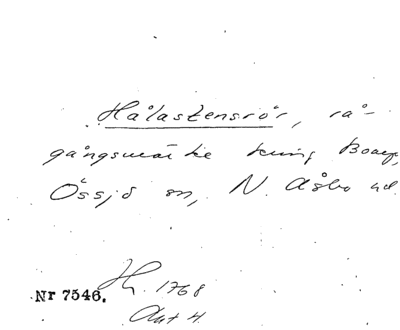 Hålastensrör, rå-
gångsmärke kring Boarp,
Össjö sn, N. Åsbo hd.
H. 1768
Nr 7546.
Akt 4.